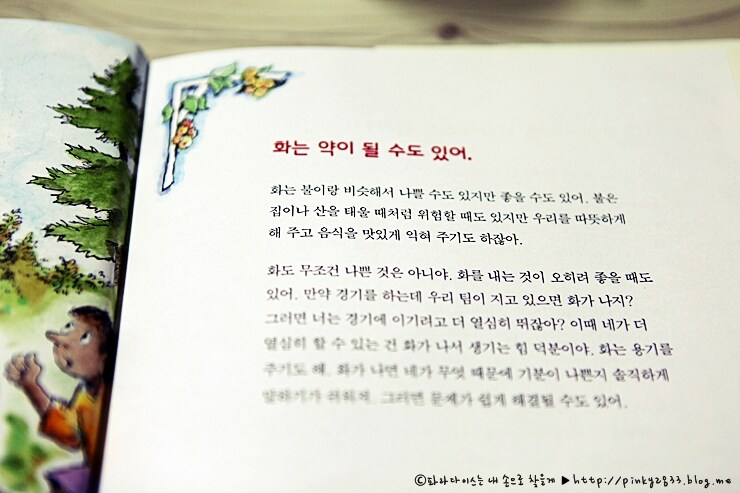 화는 약이 될 수도 있어.
화는 불이랑 비슷해서 나쁠 수도 있지만 좋을 수도 있어. 불은
집이나 산을 태울 때처럼 위험할 때도 있지만 우리를 따뜻하게
해 주고 음식을 맛있게 익혀 주기도 하잖아.
화도 무조건 나쁜 것은 아니야. 화를 내는 것이 오히려 좋을 때도
있어. 만약 경기를 하는데 우리 팀이 지고 있으면 화가 나지?
그러면 너는 경기에 이기려고 더 열심히 뛰잖아? 이때 네가 더
열심히 할 수 있는 건 화가 나서 생기는 힘 덕분이야. 화는 용기를
주기도 해. 화가 나면 네가 무엇 때문에 기분이 나쁜지 솔직하게
말하기가 쉬워져. 그러면 문제가 쉽게 해결될 수도 있어.
©파라다이스는 내 손으로 찾을게 ▶http://pinky2833.blog.me